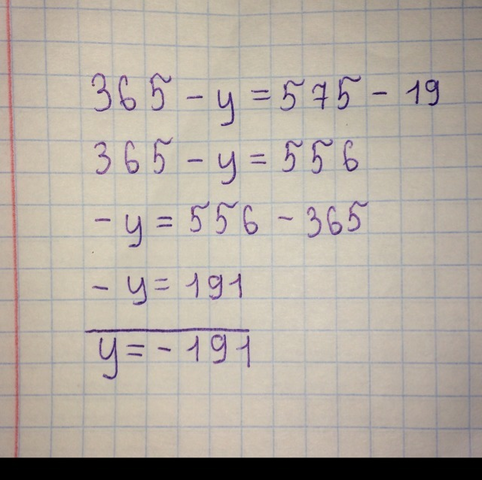 365 - y = 575 - 19
365 - y = 556
- y = 556 - 365
- y = 191
y = - 191